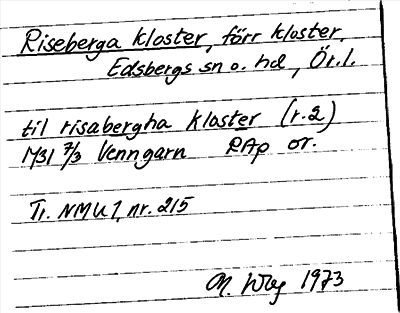 Riseberga kloster, förr kloster,
Edsbergs sn o. hd, Ör.l.
til risabergha kloster (r.2)
1431 7/3 Venngarn RAp or.
Tr. NMU 1, nr. 215
M. 1973